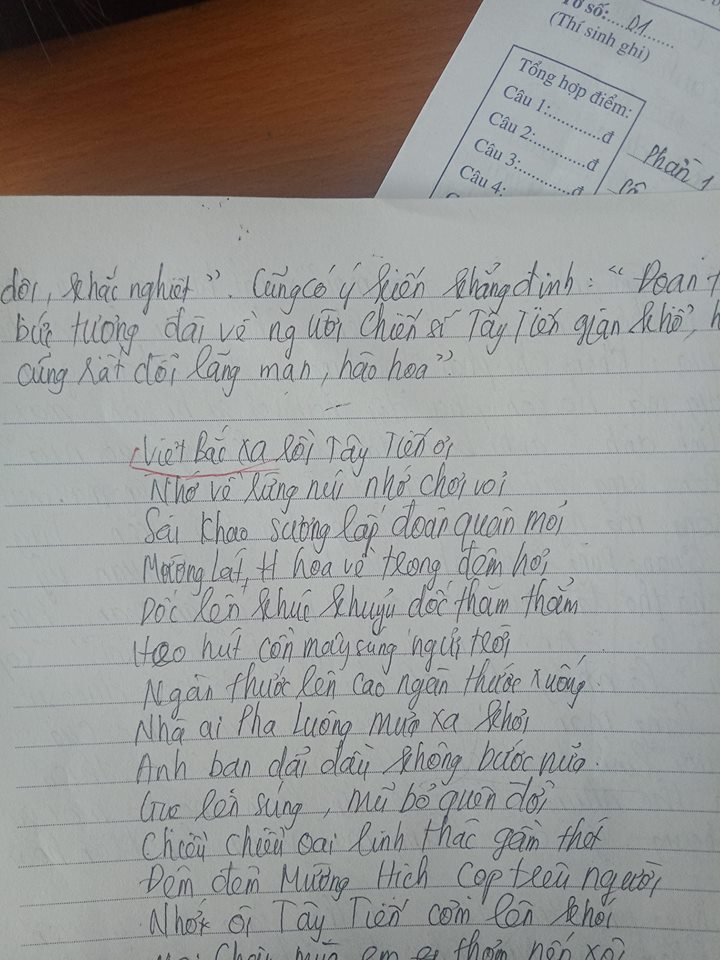 Tờ số:....01........
(Thí sinh ghi)
Tổng hợp điểm:
Câu 1:...........đ
Câu 2:...........đ
Câu 3:...........đ
Câu 4:
Phần 1
dội, khắc nghiệt". Cũng có ý kiến khẳng định: "Đoạn
bức tượng đài về người chiến sĩ Tây Tiến gian khổ, h
cũng rất đỗi lãng mạn, hào hoa".
Việt Bắc xa lồi Tây Tiến ơi
Nhớ về rừng núi nhớ chơi vơi
Sài Khao sương lấp đoàn quân mỏi
Mường Lát, H hoa về trong đêm hơi
Dốc lên khúc khuỷu dốc thăm thẳm
Heo hút cồn mây súng ngửi trời
Ngàn thước lên cao ngàn thước xuống.
Nhà ai Pha Luông mưa xa khơi
Anh bạn dãi dầu không bước nữa.
Gục lên súng, mũ bỏ quên đời
Chiều chiều oai linh thác gầm thét
Đêm đêm Mường Hich cọp trêu người
Nhớ ôi Tây Tiến cơm lên khói
mùa em thơm nếp xôi